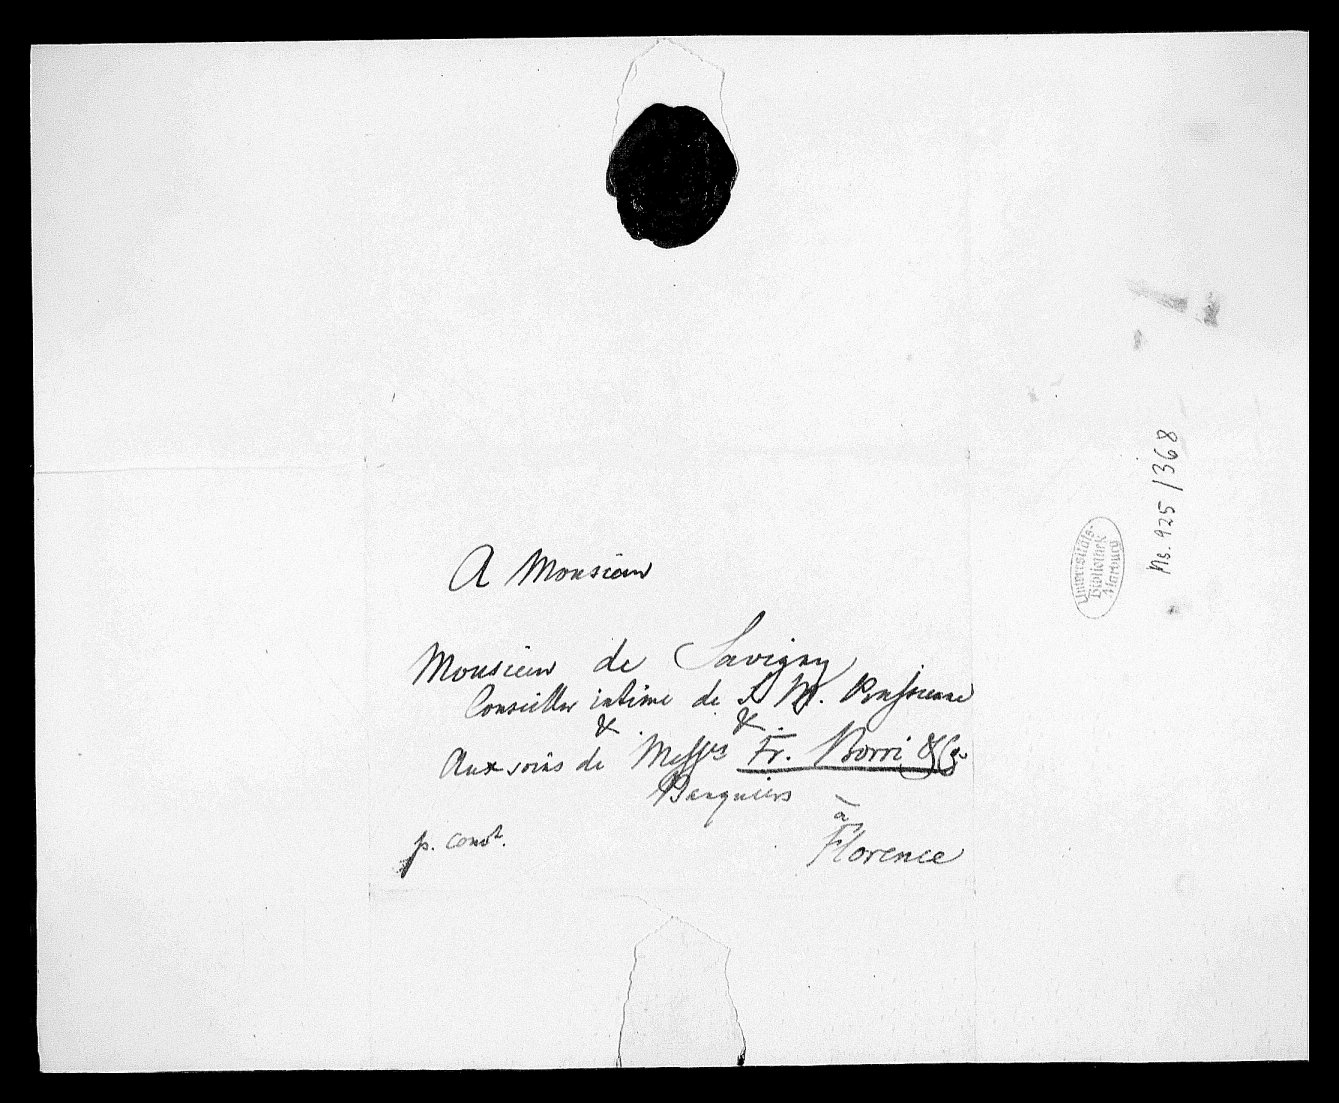 A Monsieur
Monsieur de Savigny
Conseiller intime de S. M. Prussienne
& &.
Aux soins de Messrs Fr. Borri & Co
Banquiers
à
Florence
p. couvt.
Universitäts-
Bibliothek
Marburg
Ms. 925/368